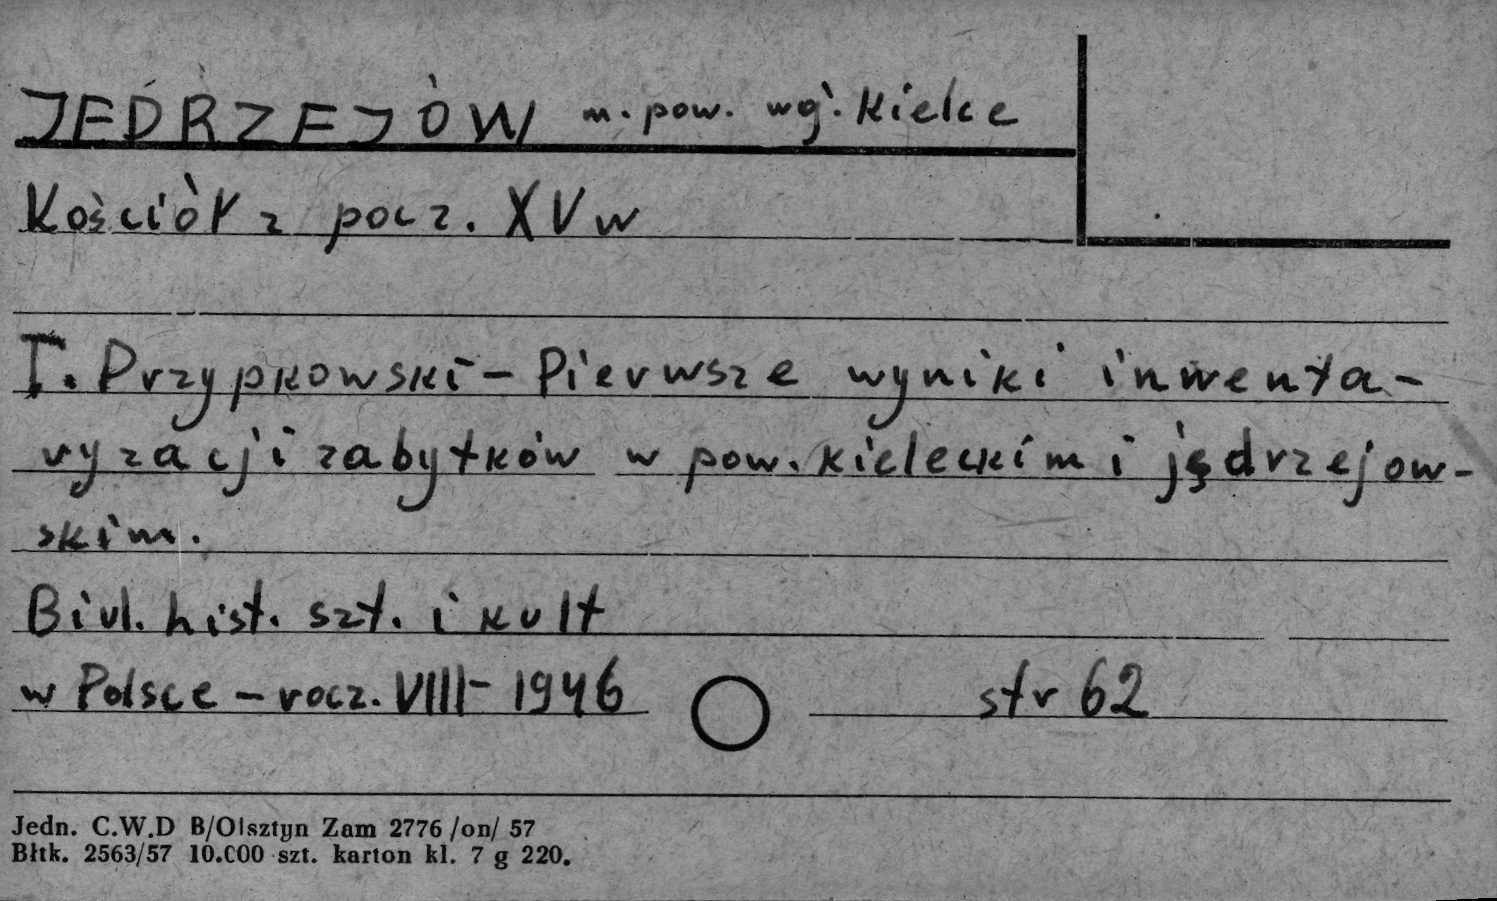 JEDRZEJÓW m. pow. wój. Kielce
Kościół z pocz. XV w
T. Przypkowski - Pierwsze wyniki inwenta-
ryzacji zabytków w pow. kieleckim i jędrzejow-
skim.
Biul. hist. szt. i kult
w Polsce - rocz. VIII - 1946 str 62
Jedn. C.W.D B/Olsztyn Zam 2776 /on/ 57
Błtk. 2563/57 10.000 szt. karton kl. 7 g 220.